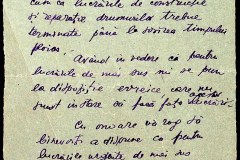 cum că lucrările de construcție
și reparația drumurilor trebue
terminate până la sosirea timpului
ploios.
Având în vedere că pentru
lucrările de mai sus mi se pun
la dispoziție evreice care nu
sunt în stare să facă față lucrării
Cu onoare vă rog să
binevoiți a dispune ca pentru
lucrările urgente de mai sus